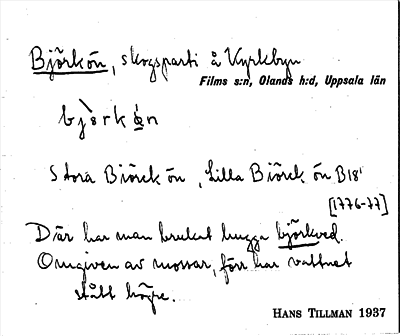 Björkön, skogsparti å Kyrkbyn
Films s:n, Olands h:d, Uppsala län
bjòrkǿn
Stora Biörck ön, Lilla Biörck ön B18'
[1776-77]
Där har man brukat hugga björkved.
Omgiven av mossar, förr har vattnet
stått högre.
HANS TILLMAN 1937